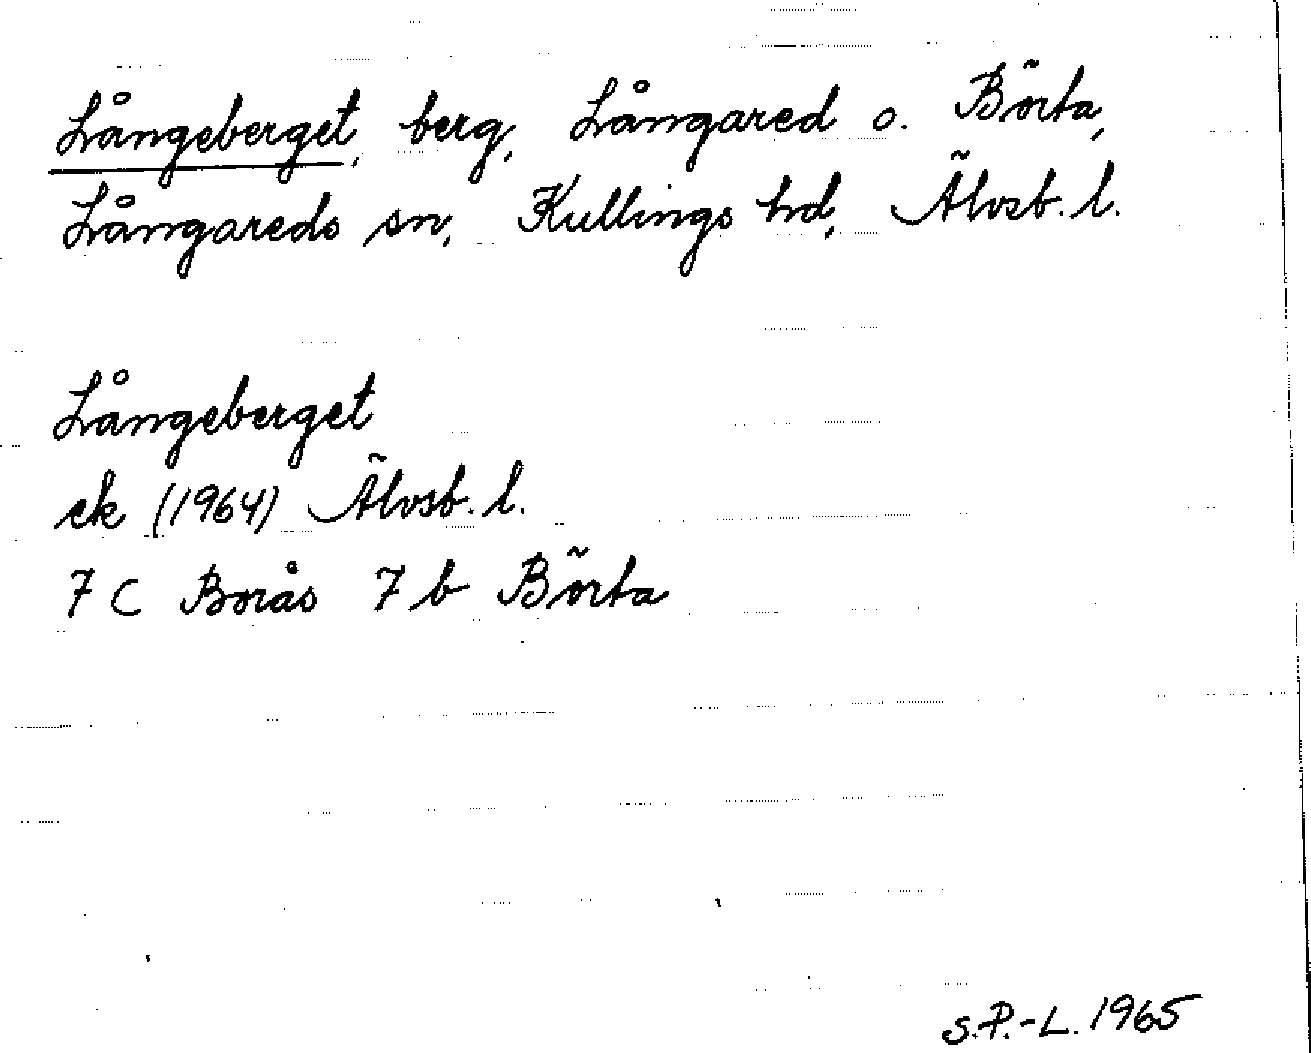 Långeberget, berg, Långared o. Börta,
Långareds sn, Kullings hd, Älvsb. l.
Långeberget
ek (1964) Älvsb. l.
7 C Borås 7 b Börta
S.P.-L. 1965